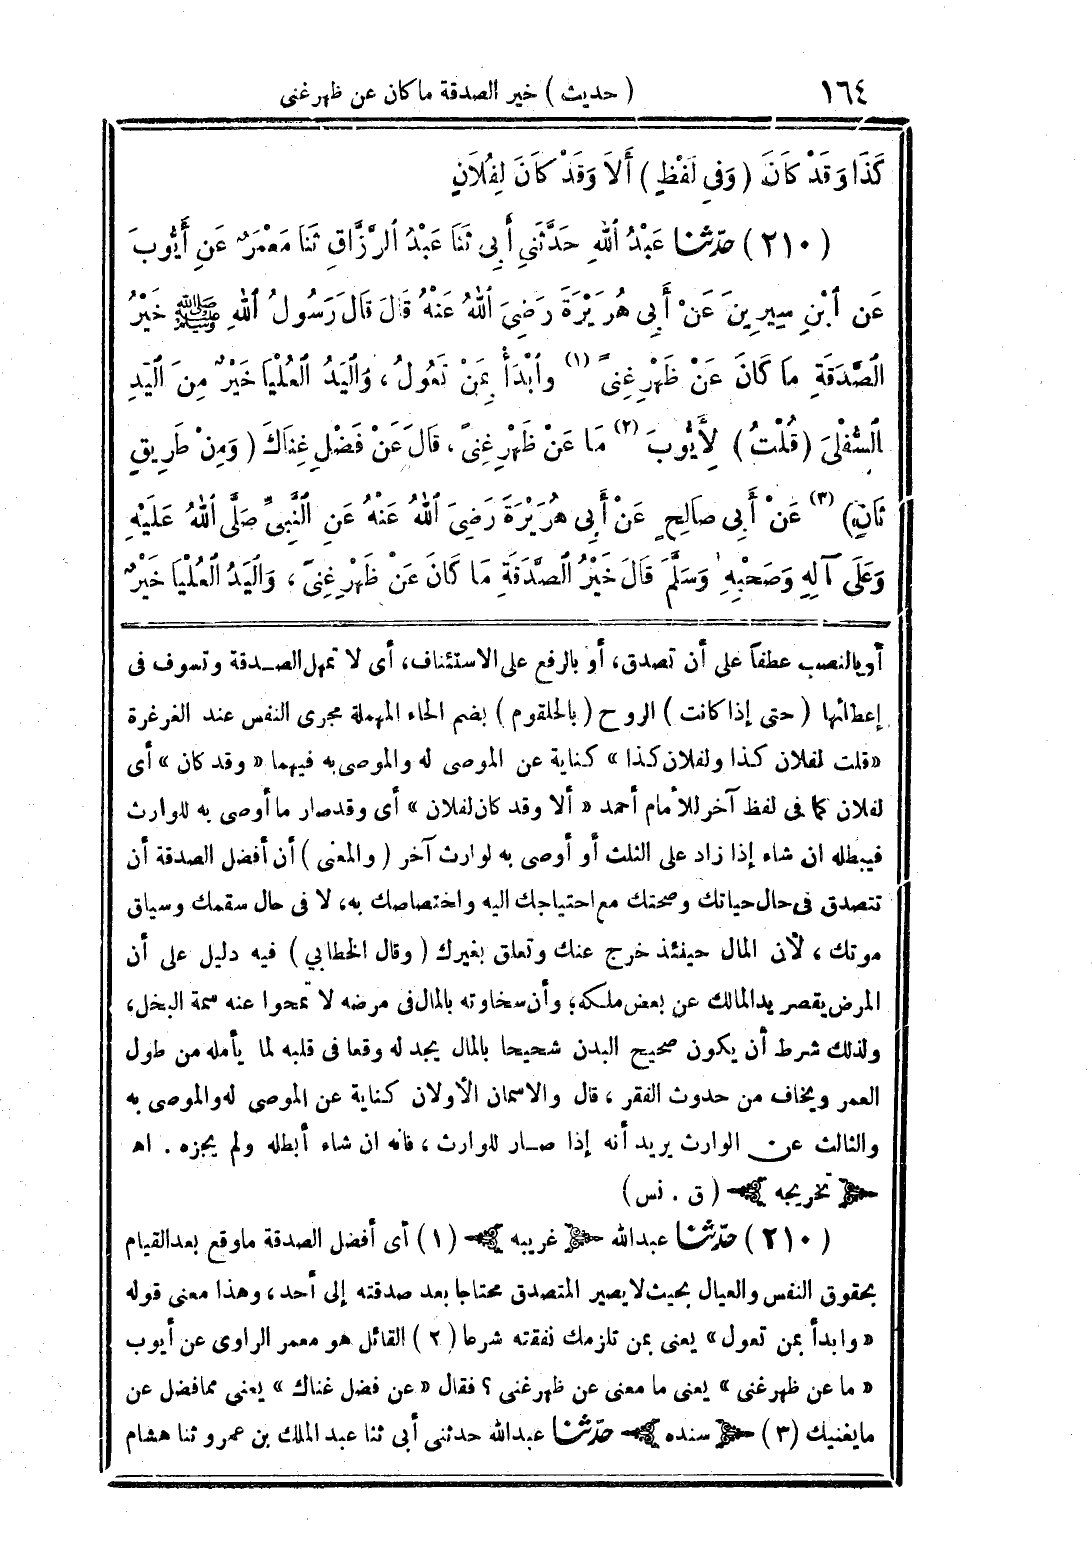 ١٦٤ ( حديث ) خير الصدقة ما كان عن ظهر غنى
كَذَا وَقَدْ كَانَ ( وَفِي لَفْظٍ ) أَلاَ وَقَدْ كَانَ لِفُلاَنٍ
( ٢١٠ ) حدّثنا عَبْدُ اللهِ حَدَّثَنِي أَبِي ثَنَا عَبْدُ الرَّزَّاقِ ثَنَا مَعْمَرٌ عَنِ أَيُّوبَ
عَنِ ابْنِ سِيرِينَ عَنْ أَبِي هُرَيْرَةَ رَضِيَ اللهُ عَنْهُ قَالَ قَالَ رَسُولُ اللهِ ﷺ خَيْرُ
الصَّدَقَةِ مَا كَانَ عَنْ ظَهْرِ غِنىً (١) وَابْدَأْ بِمَنْ تَعُولُ ، وَالْيَدُ الْعُلْيَا خَيْرٌ مِنَ الْيَدِ
السُّفْلَىَ ( قُلْتُ ) لِأَيُّوبَ (٢) مَا عَنْ ظَهْرِ غِنىً ، قَالَ عَنْ فَضْلِ غِنَاكَ ( وَمِنْ طَرِيقٍ
ثَانٍ) (٣) عَنْ أَبِي صَالِحٍ عَنْ أَبِي هُرَيْرَةَ رَضِيَ اللهُ عَنْهُ عَنِ النَّبِيِّ صَلَّى اللهُ عَلَيْهِ
وَعَلَى آلِهِ وَصَحْبِهِ وَسَلَّمَ قَالَ خَيْرُ الصَّدَقَةِ مَا كَانَ عَنْ ظَهْرِ غِنىً ، وَالْيَدُ الْعُلْيَا خَيْرٌ
أو بالنصب عطفاً على أن تصدق، أو بالرفع على الاستئناف، أى لا تمهل الصـدقة وتسوف فى
إعطائها ( حتى إذا كانت ) الروح ( بالحلقوم ) بضم الحاء المهملة مجرى النفس عند الغرغرة
«قلت لفلان كذا ولفلان كذا » كناية عن الموصى له والموصى به فيهما « وقد كان » أى
لفلان كما فى لفظ آخر للأمام أحمد « ألا وقد كان لفلان » أى وقد صار ما أوصى به للوارث
فيبطله ان شاء إذا زاد على الثلث أو أوصى به لوارث آخر ( والمعنى ) أن أفضل الصدقة أن
تتصدق فى حال حياتك وصحتك مع احتياجك اليه واختصاصك به، لا فى حال سقمك وسياق
موتك ، لأن المال حينئذ خرج عنك وتعلق بغيرك ( وقال الخطابي ) فيه دليل على أن
المرض يقصر يد المالك عن بعض ملكه؛ وأن سخاوته بالمال فى مرضه لا تمحوا عنه سمة البخل،
ولذلك شرط أن يكون صحيح البدن شحيحا بالمال يجد له وقعا فى قلبه لما يأمله من طول
العمر ويخاف من حدوث الفقر ، قال والاسمان الأولان كناية عن الموصى له والموصى به
والثالث عن الوارث يريد أنه إذا صـار للوارث ، فانه ان شاء أبطله ولم يجزه . اھ
تخريجه ( ق . نس)
( ٢١٠ ) حدّثنا عبدالله غريبه ( ١ ) أى أفضل الصدقة ماوقع بعد القيام
بحقوق النفس والعيال بحيث لا يصير المتصدق محتاجا بعد صدقته إلى أحد، وهذا معنى قوله
«وابدأ بمن تعول» يعنى بمن تلزمك نفقته شرعا ( ٢ ) القائل هو معمر الراوى عن أيوب
« ما عن ظهر غنى » يعنى ما معنى عن ظهر غنى ؟ فقال « عن فضل غناك » يعنى مما فضل عن
ما يغنيك (٣) سنده حدّثنا عبدالله حدثنى أبى ثنا عبد الملك بن عمرو ثنا هشام